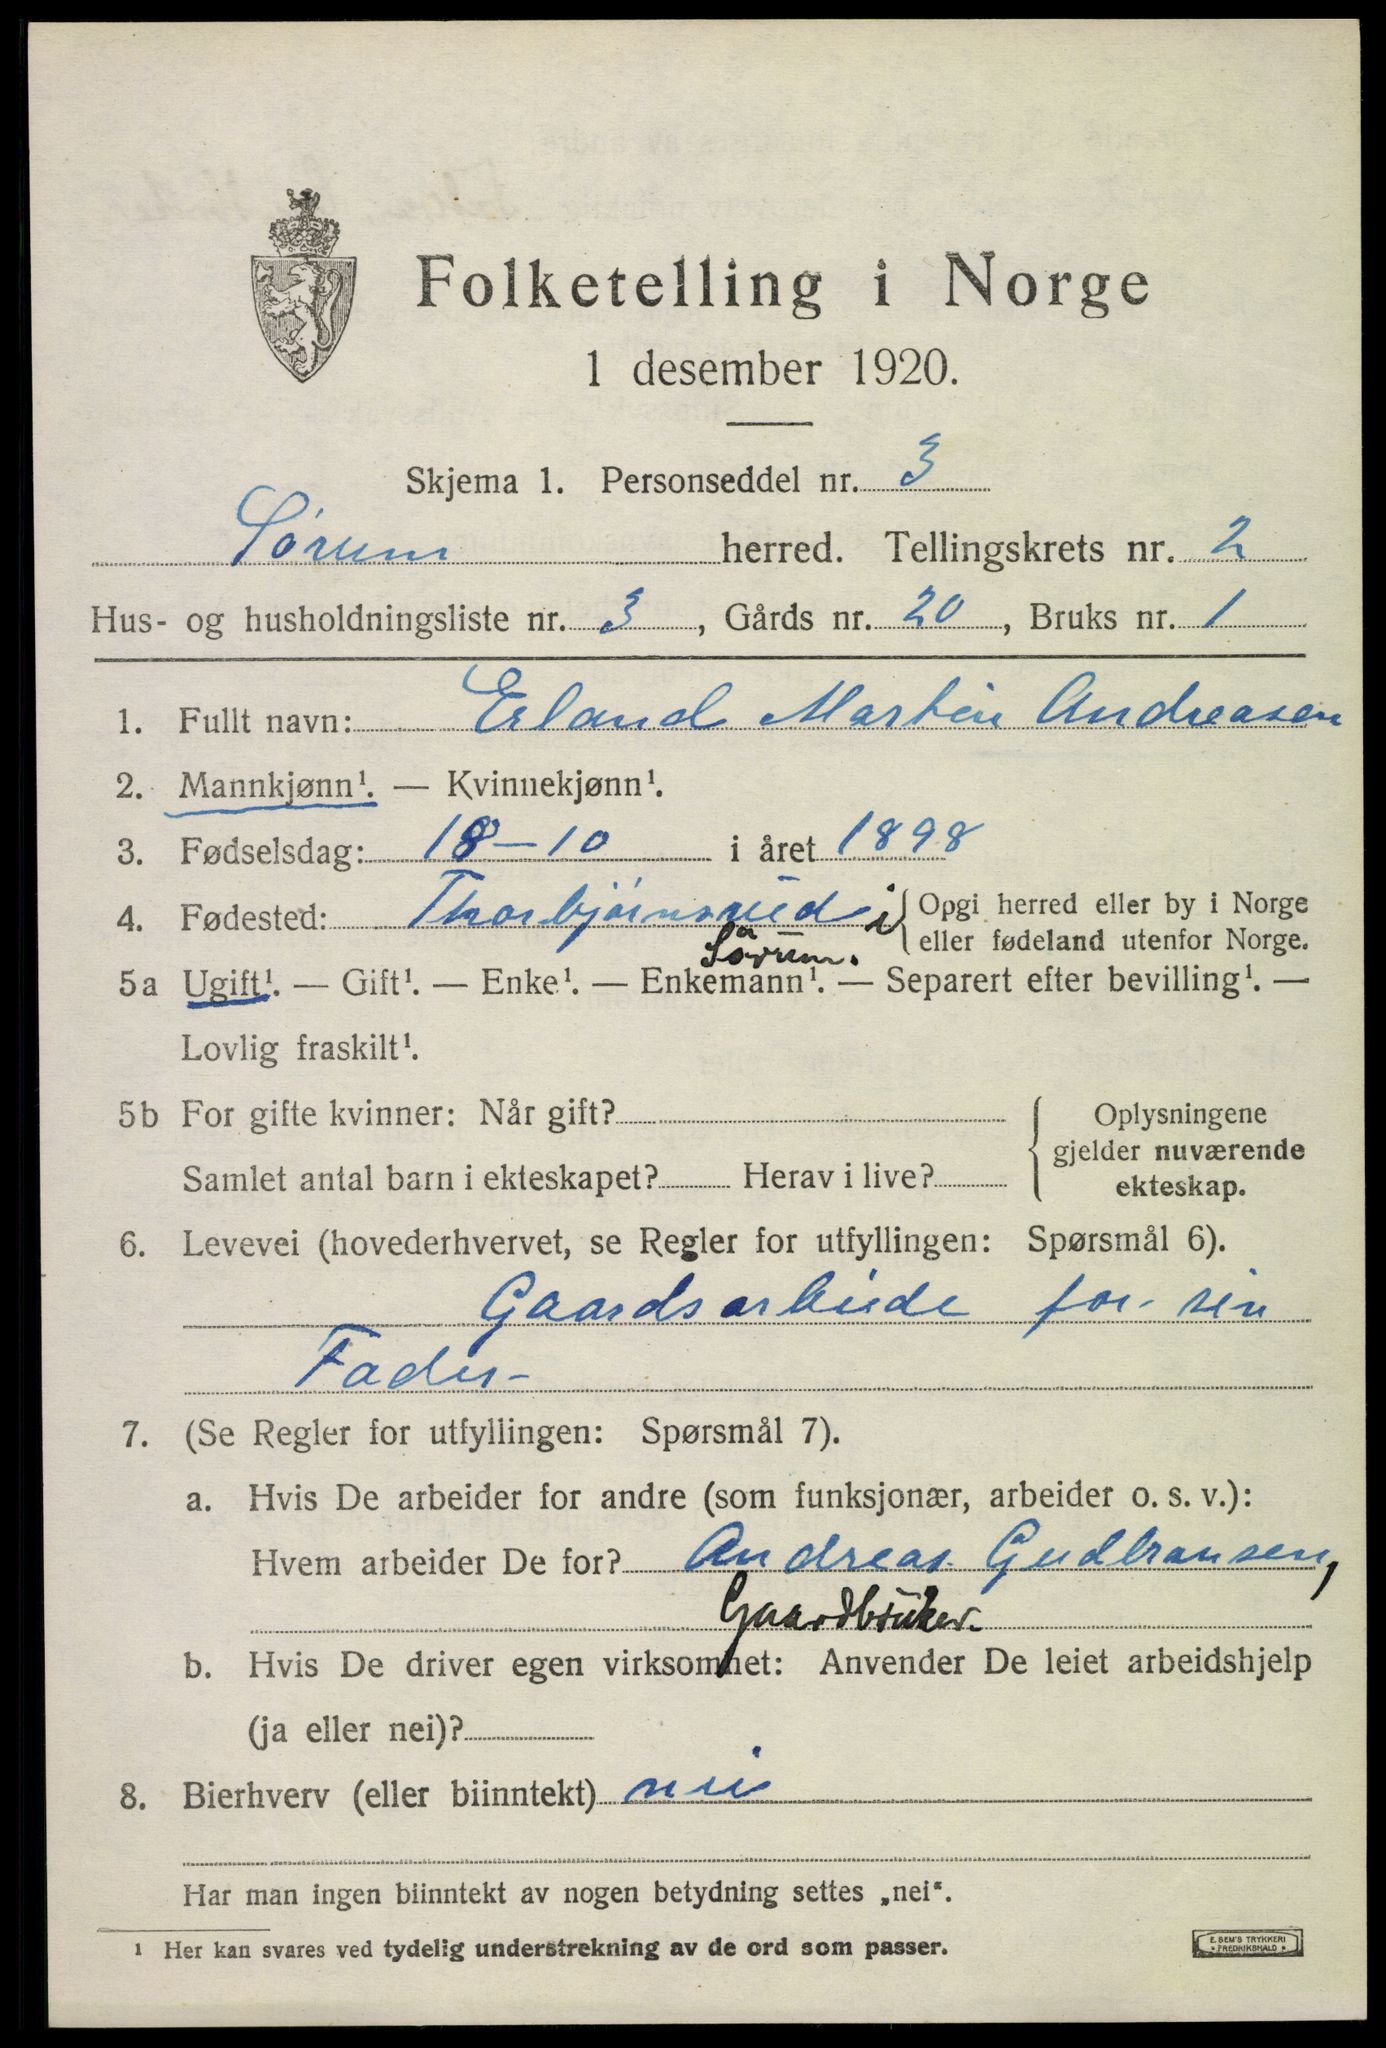 Folketelling i Norge
1 desember 1920.
Skjema 1. Personseddel nr. 3
Sørum herred. Tellingskrets nr. 2
Hus- og husholdningsliste nr. 3, Gårds nr. 20, Bruks nr. 1
1. Fullt navn: Erland Martin Andreasen
2. Mannkjønn¹. — Kvinnekjønn¹.
3. Fødselsdag: 18-10 i året 1898
4. Fødested: Thorbjørnsrud i Opgi herred eller by i Norge
eller fødeland utenfor Norge.
Sørum.
5a Ugift¹. — Gift¹. — Enke¹. — Enkemann¹. — Separert efter bevilling¹. —
Lovlig fraskilt¹.
5b For gifte kvinner: Når gift?
Samlet antal barn i ekteskapet? Herav i live?
Oplysningene
gjelder nuværende
ekteskap.
6. Levevei (hovederhvervet, se Regler for utfyllingen: Spørsmål 6).
Gaardsarbeide for sin
Fader-
7. (Se Regler for utfyllingen: Spørsmål 7).
a. Hvis De arbeider for andre (som funksjonær, arbeider o. s. v.):
Hvem arbeider De for? Andreas Gudbransen,
Gaardbruker.
b. Hvis De driver egen virksomhet: Anvender De leiet arbeidshjelp
(ja eller nei)?
8. Bierhverv (eller biinntekt) nei
Har man ingen biinntekt av nogen betydning settes „nei“.
¹ Her kan svares ved tydelig understrekning av de ord som passer.
E. SEM'S TRYKKERI
* FREDRIKSHALD *